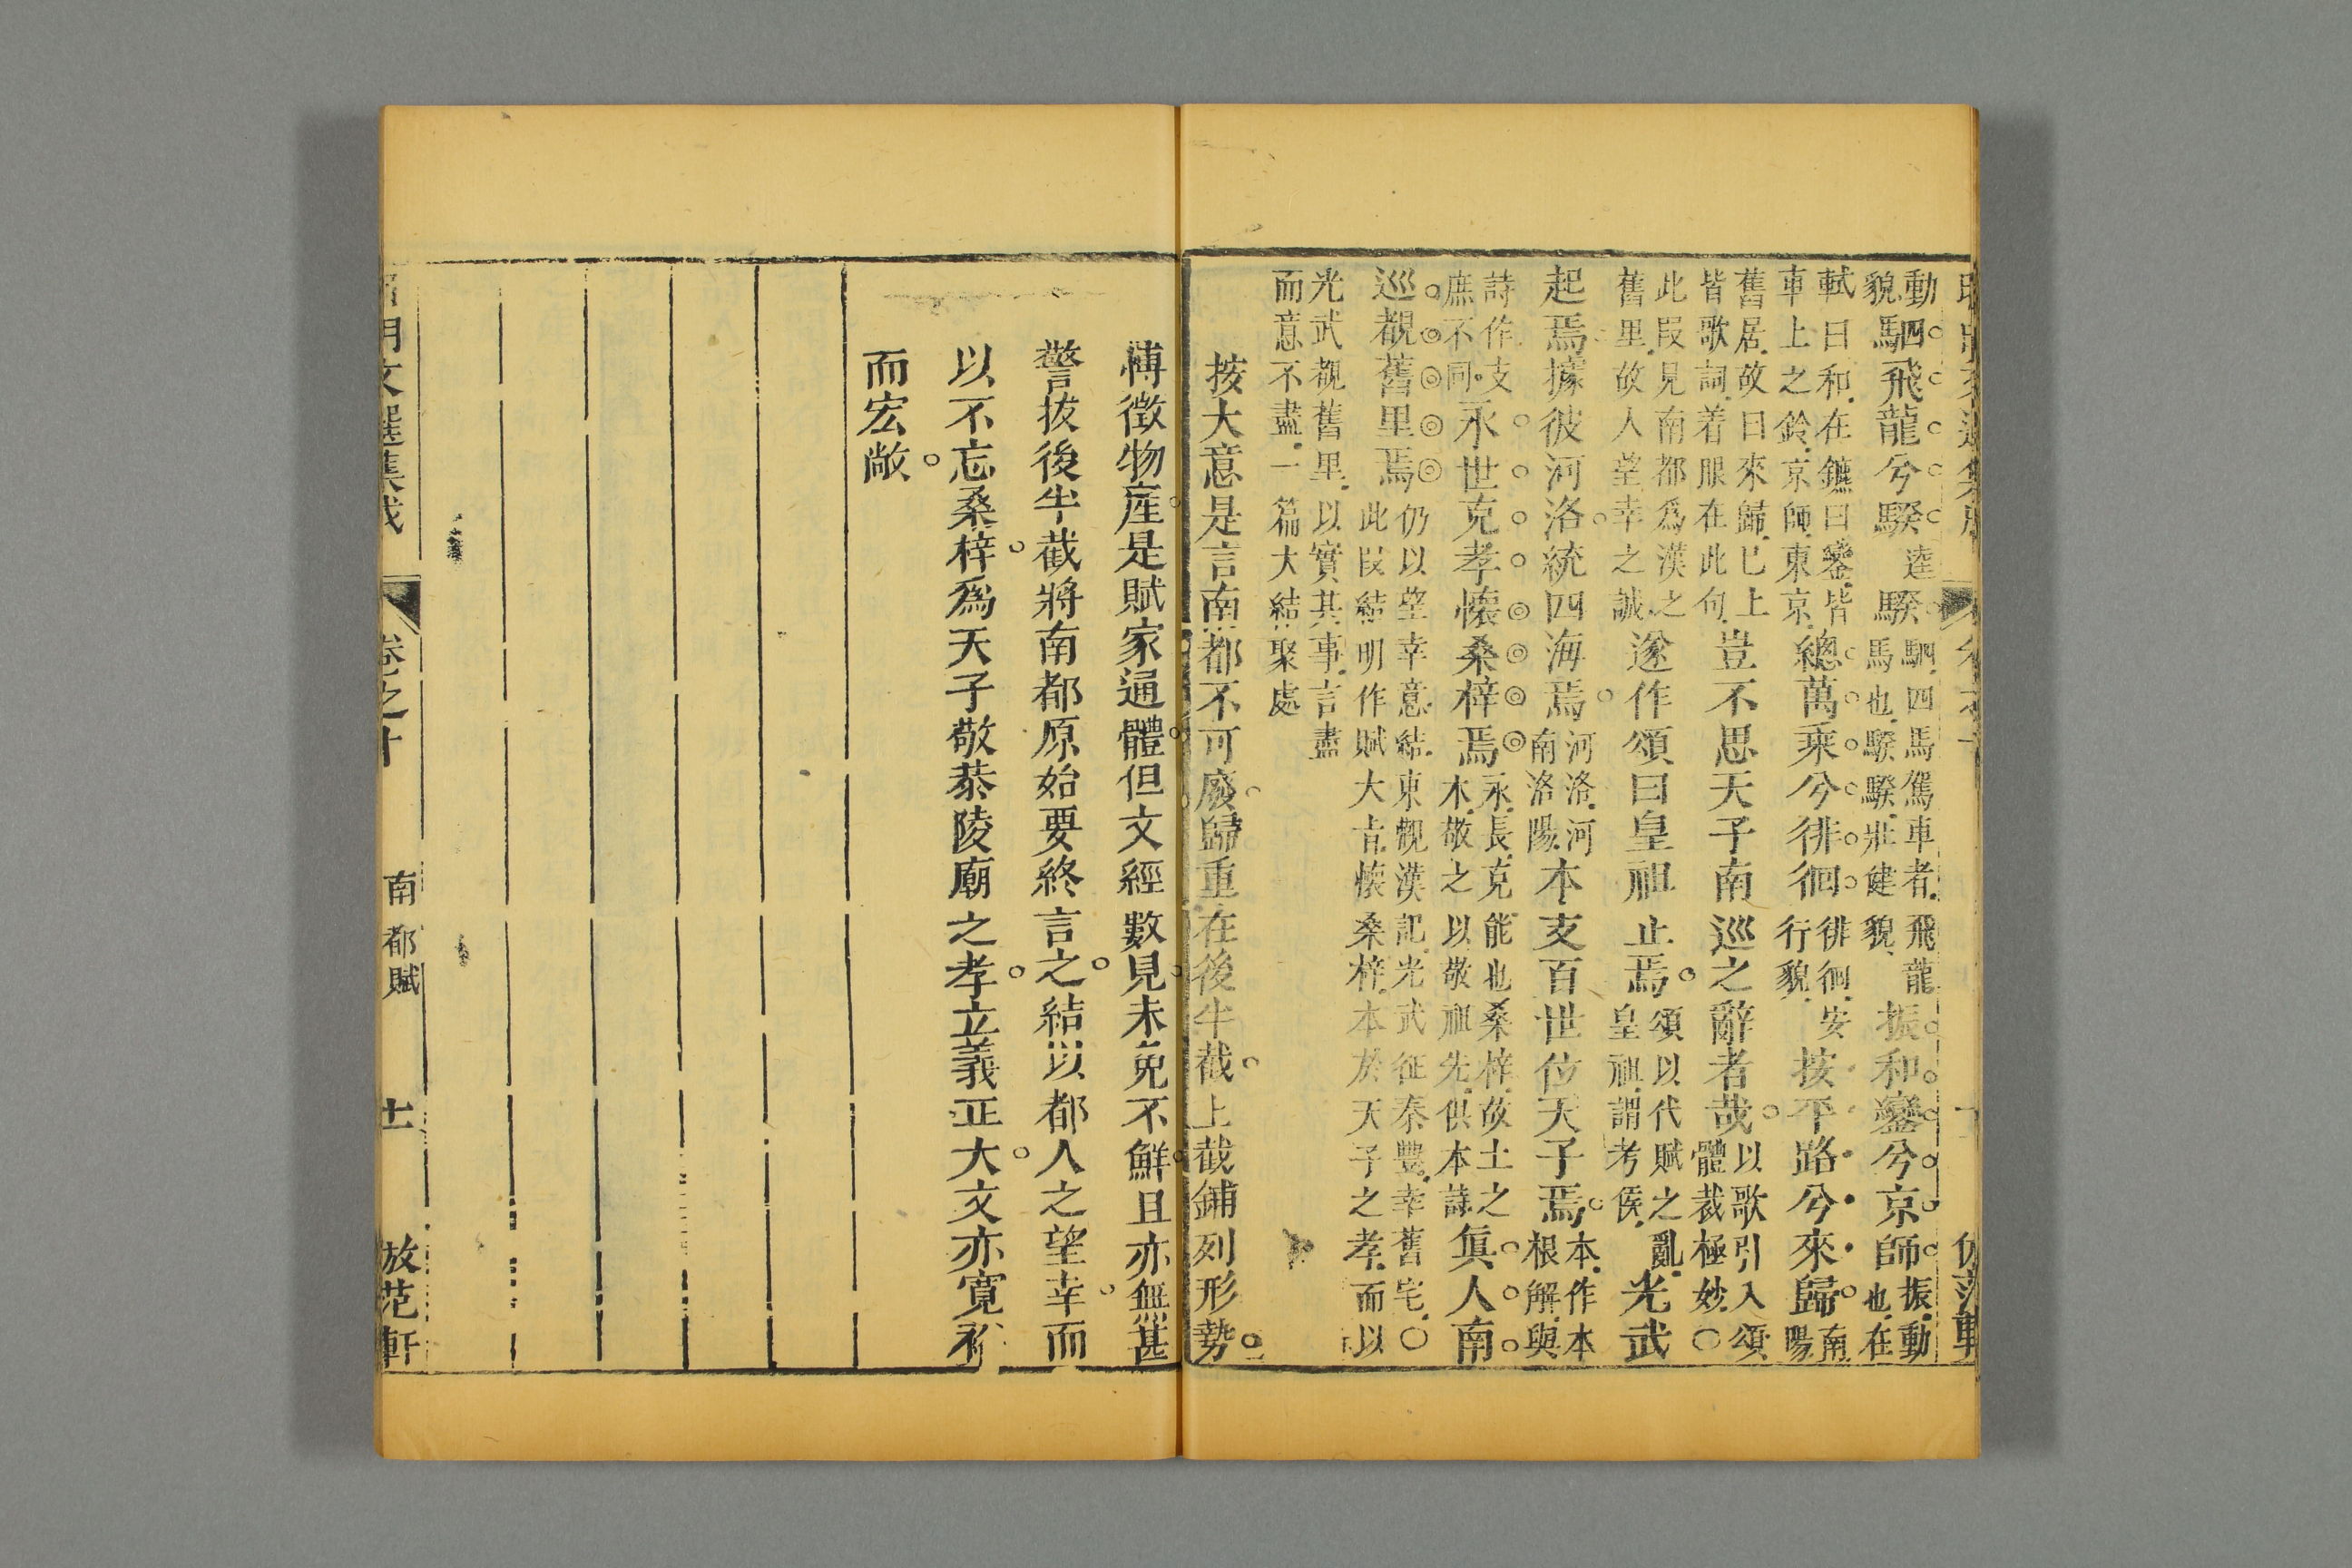 動貌駟飛龍兮騤逵騤駟四馬駕車者飛龍馬也騤騤壯健貌振和鑾兮京師振動也在
軾曰和在鑣曰鑾皆車上之鈴京師東京總萬乘兮徘徊徘徊安行貌按平路兮來歸南陽
舊居故曰來歸已上皆歌詞着眼在此句豈不思天子南巡之辭者哉以歌引入頌體裁極妙〇
此段見南都爲漢之舊里故人望幸之誠遂作頌曰皇祖止焉頌以代賦之亂皇祖謂考侯光武
起焉據彼河洛統四海焉河洛河南洛陽本支百世位天子焉本作本根解與
詩作支庶不同永世克孝懷桑梓焉永長克能也桑梓故土之木敬之以敬祖先俱本詩眞人南
巡覩舊里焉仍以望幸意結東觀漢記光武征秦豐幸舊宅〇此段結明作賦大旨懷桑梓本於天子之孝而以
光武覩舊里以實其事言盡而意不盡一篇大結聚處
按大意是言南都不可廢歸重在後半截上截鋪列形勢
博徵物產是賦家通體但文經數見未免不鮮且亦無甚
警拔後半截將南都原始要終言之結以都人之望幸而
以不忘桑梓爲天子敬恭陵廟之孝立義正大文亦寬衍
而宏敞
昭明文選集成
卷之十
南都賦
十一
放范軒